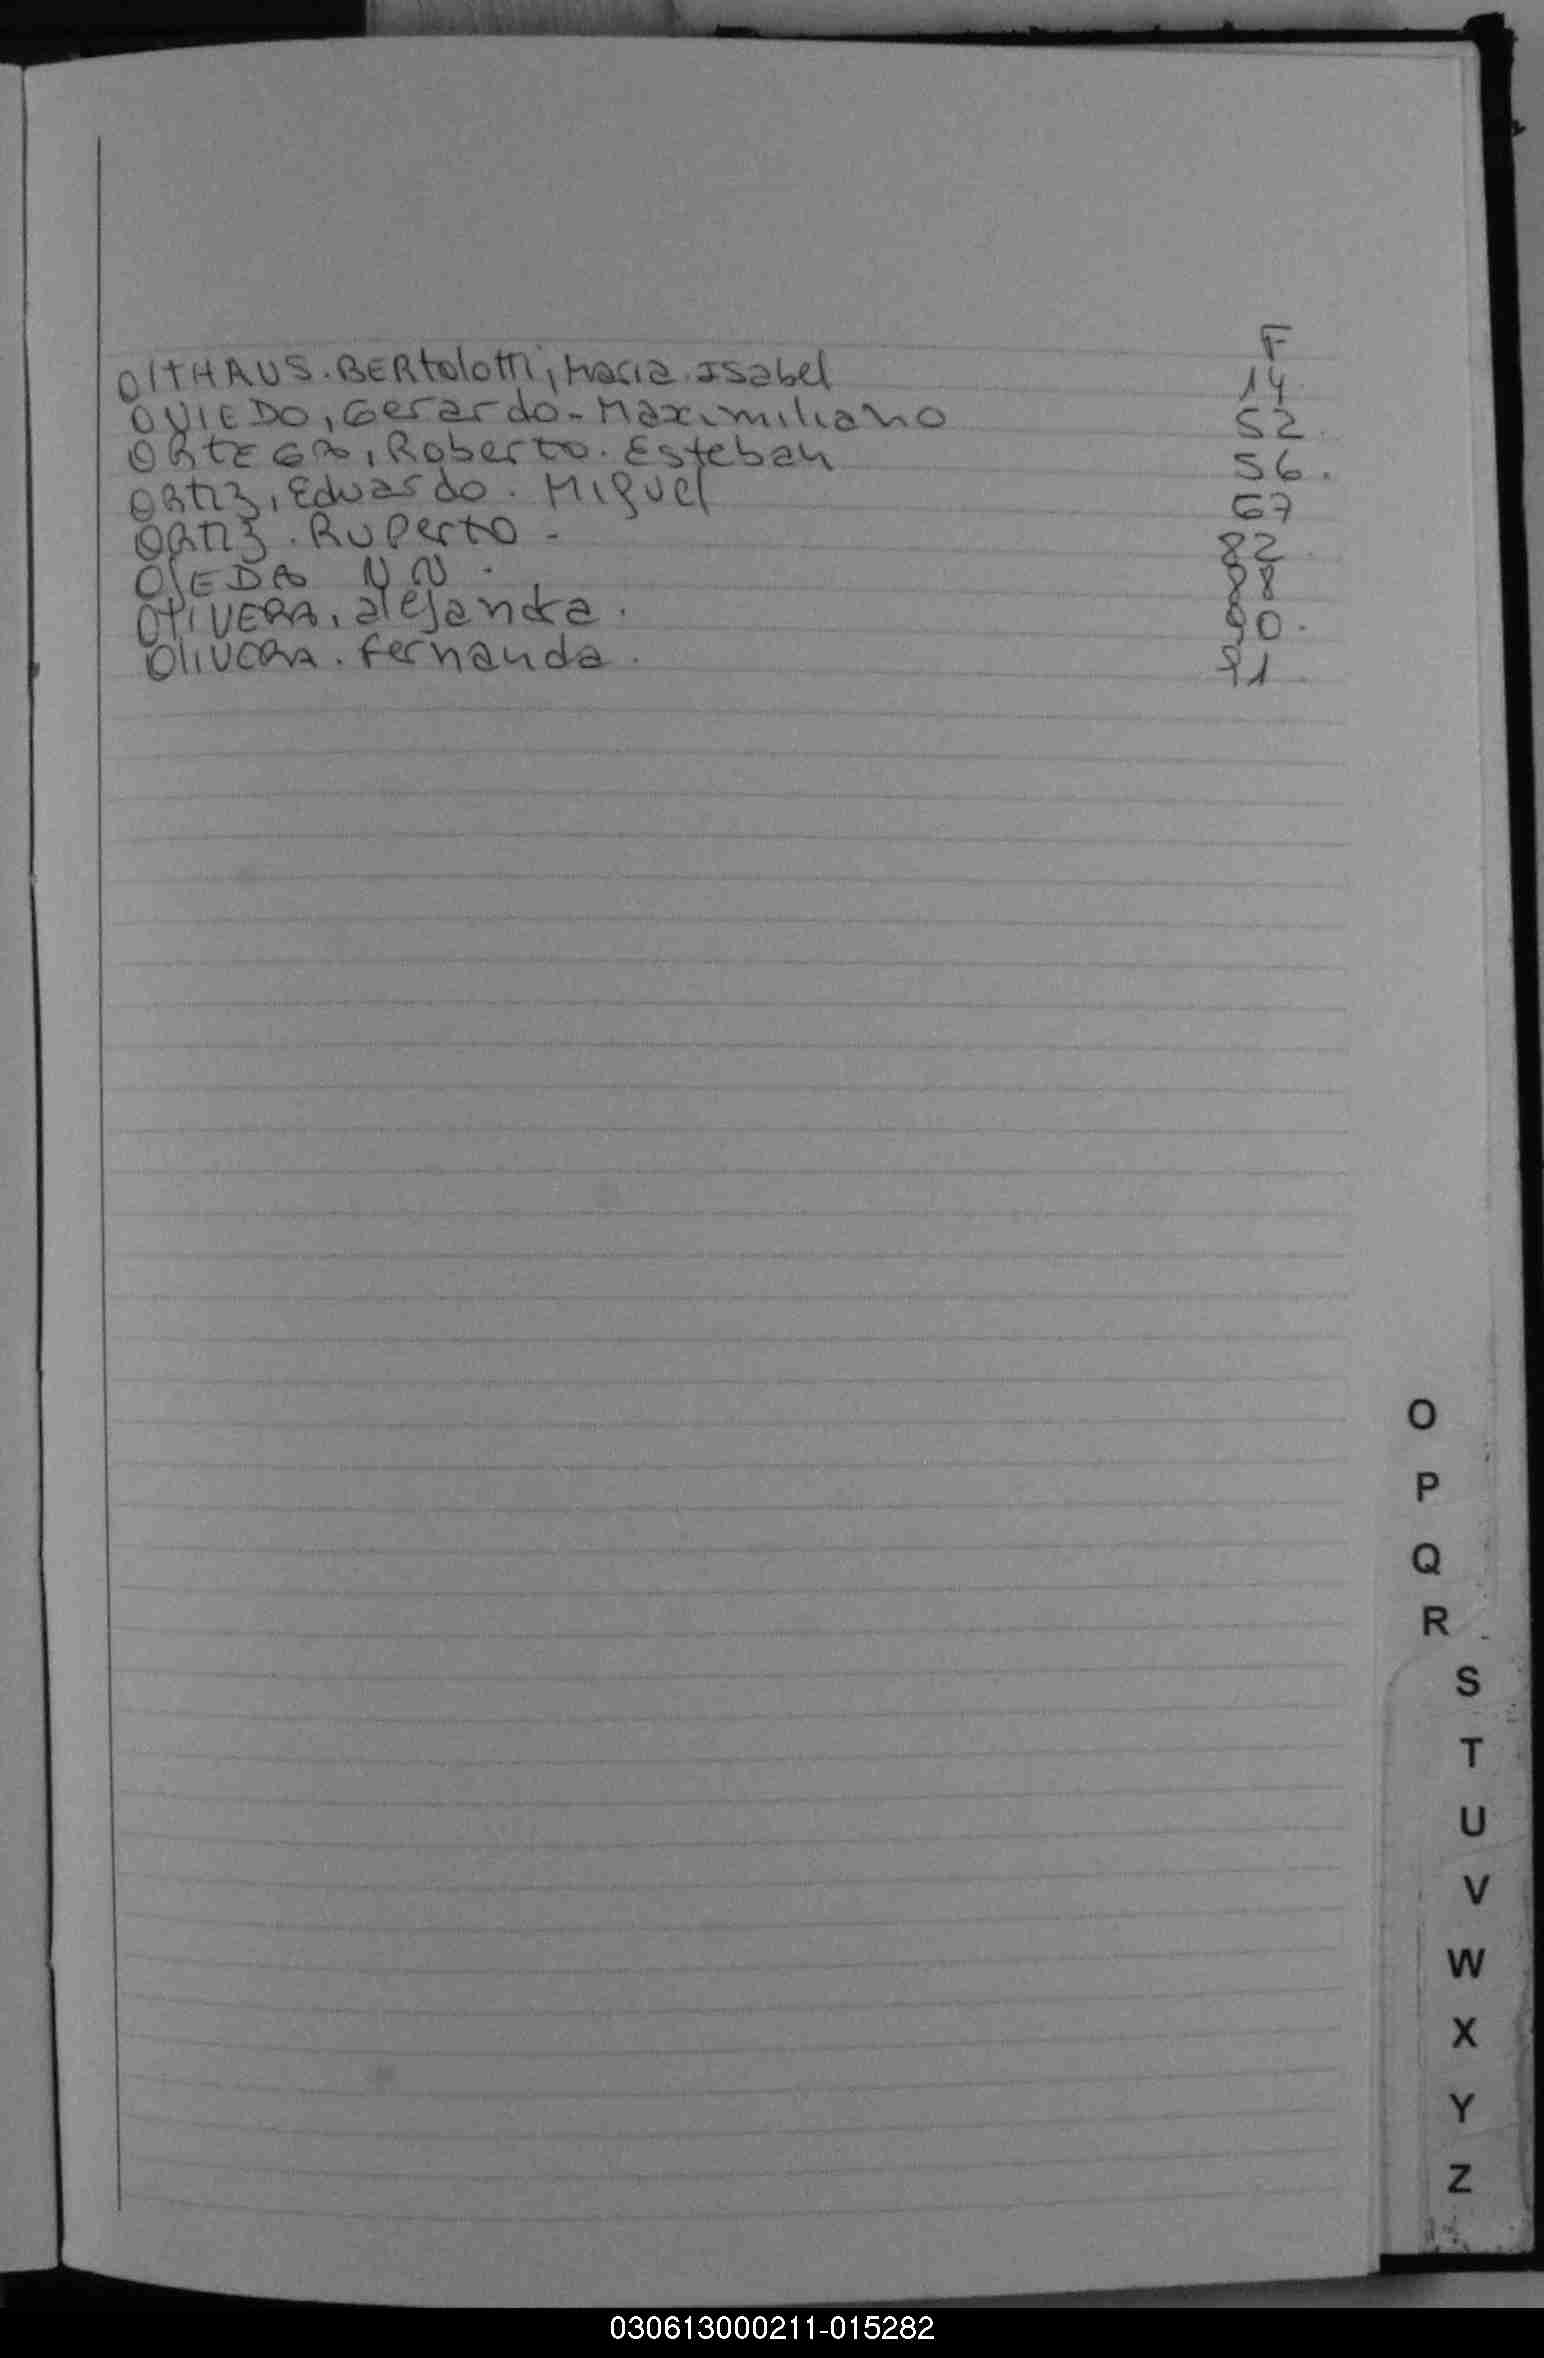 F
OlTHAUS. BERtolotti, Maria. Isabel 14
OVIEDO, Gerardo - Maximiliano 52
ORtEGA, Roberto. Esteban 56.
ORtiz, Eduardo. Miguel 67
ORtiz. Ruperto - 82
OJEDA NN. 88
OlIVERA, alejandra. 90.
OlIVERA. Fernanda. 91
O
P
Q
R
S
T
U
V
W
X
Y
Z
030613000211-015282